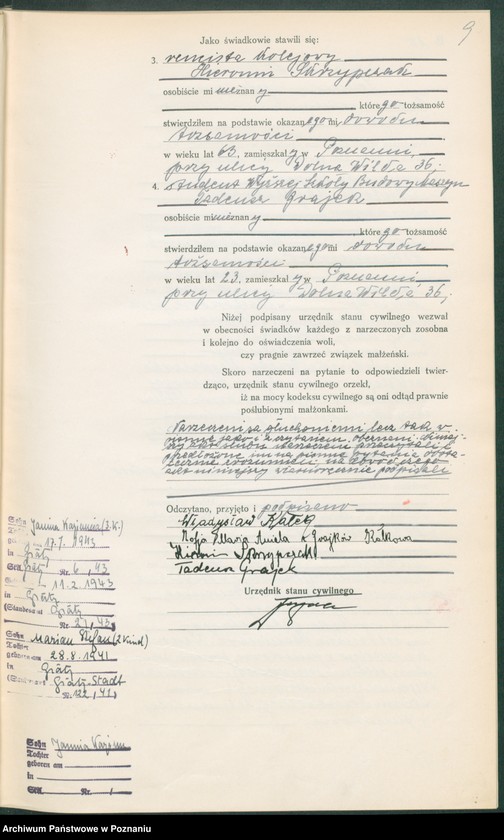 9
Jako świadkowie stawili się:
3. rencista kolejowy
Hieronim Skrzypczak
osobiście mi nieznany
, którego tożsamość
stwierdziłem na podstawie okazanego mi dowodu
tożsamości
w wieku lat 63, zamieszkały w Poznaniu,
przy ulicy Dolna Wilda 36;
4. student Wyższej Szkoły Budowy Maszyn
Tadeusz Grajek
osobiście mi nieznany
, którego tożsamość
stwierdziłem na podstawie okazanego mi dowodu
tożsamości
w wieku lat 23, zamieszkały w Poznaniu,
przy ulicy Dolna Wilda 36;
Niżej podpisany urzędnik stanu cywilnego wezwał
w obecności świadków każdego z narzeczonych zosobna
i kolejno do oświadczenia woli,
czy pragnie zawrzeć związek małżeński.
Skoro narzeczeni na pytanie to odpowiedzieli twier-
dząco, urzędnik stanu cywilnego orzekł,
iż na mocy kodeksu cywilnego są oni odtąd prawnie
poślubionymi małżonkami.
Narzeczeni są głuchoniemi, lecz tak w
piśmie jako i czytaniem
na piśmie pytania
akt niniejszy własnoręcznie podpisali
Odczytano, przyjęto i podpisano
Władysław Kałek
Zofja Marja Aniela z Grajków Kałkowa
Hieronim Skrzypczak
Tadeusz Grajek
Urzędnik stanu cywilnego
Sohn Janina (3. K.)
Tochter
17.7.1943
in Grätz
StA. Grätz Nr. 6, 43
11.2.1943
in Grätz
(Standesamt Grätz
Nr. 21, 43)
Sohn Marian Stefan (2 Kind)
Tochter
geboren am 28.8.1941
in Grätz
(Standesamt Grätz-Stadt
Nr. 122, 41)
Sohn Janina
Tochter
geboren am
in
StA. Nr. /
Archiwum Państwowe w Poznaniu